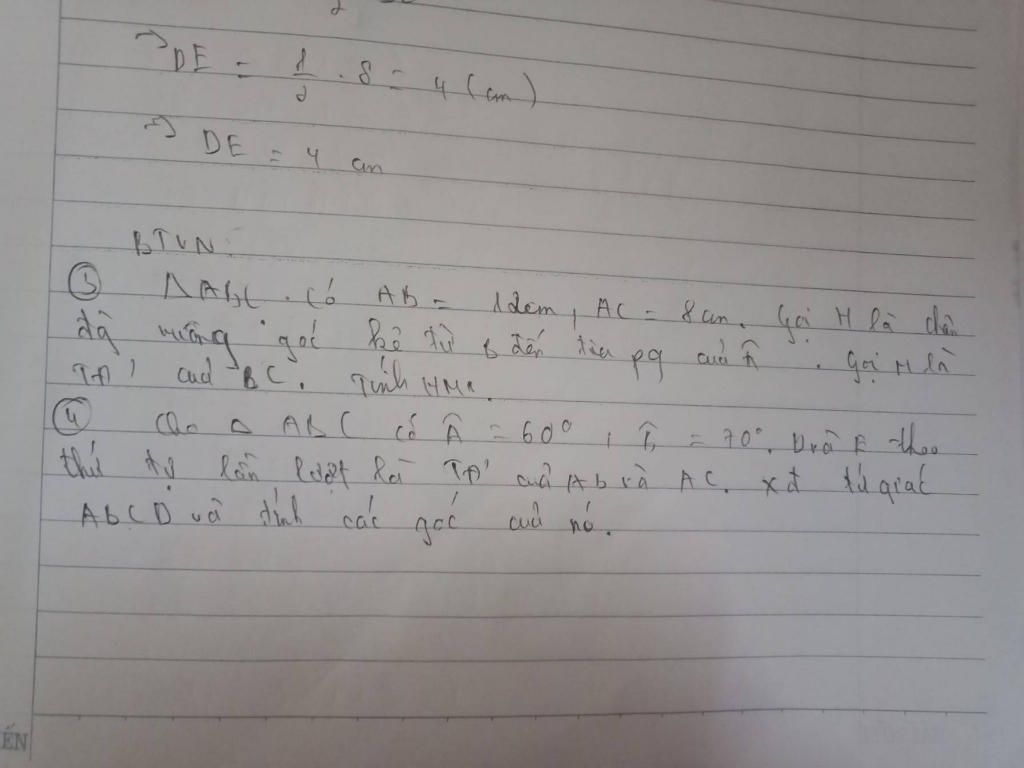 → DE = 1/2 . 8 = 4 (cm)
→ DE = 4 cm
BTVN:
③ ΔABC. có AB = 12cm, AC = 8cm. Gọi H là chân
đg vuông góc kẻ từ B đến tia pg của Â. Gọi M là
TĐ' của BC. Tính HM.
④ Cho Δ ABC có Â = 60°, B̂ = 70°. D và E theo
thứ tự lần lượt là TĐ' của AB và AC. xđ tứ giác
ABCD và tính các góc của nó.
ẾN